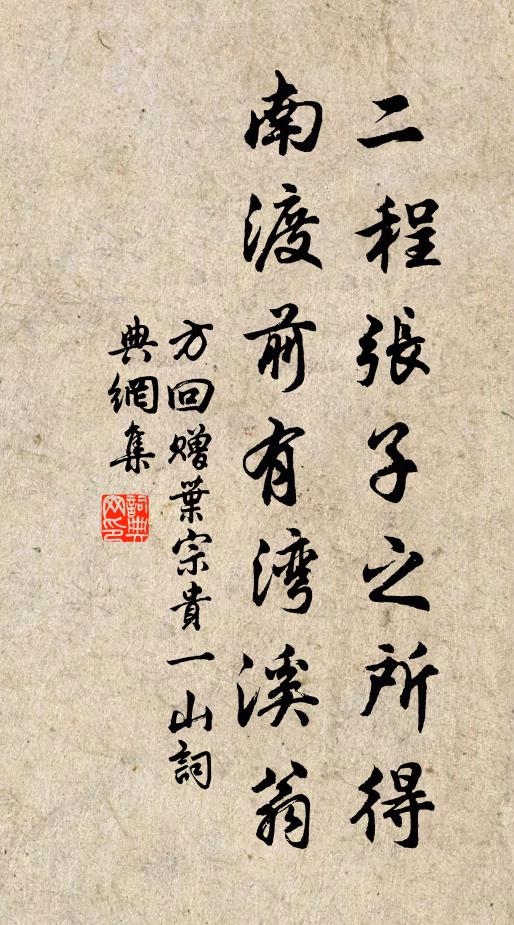 二程張子之所得
南渡前有湾溪翁
方回赠葉宗貴一山詞
典網集
詞典网印